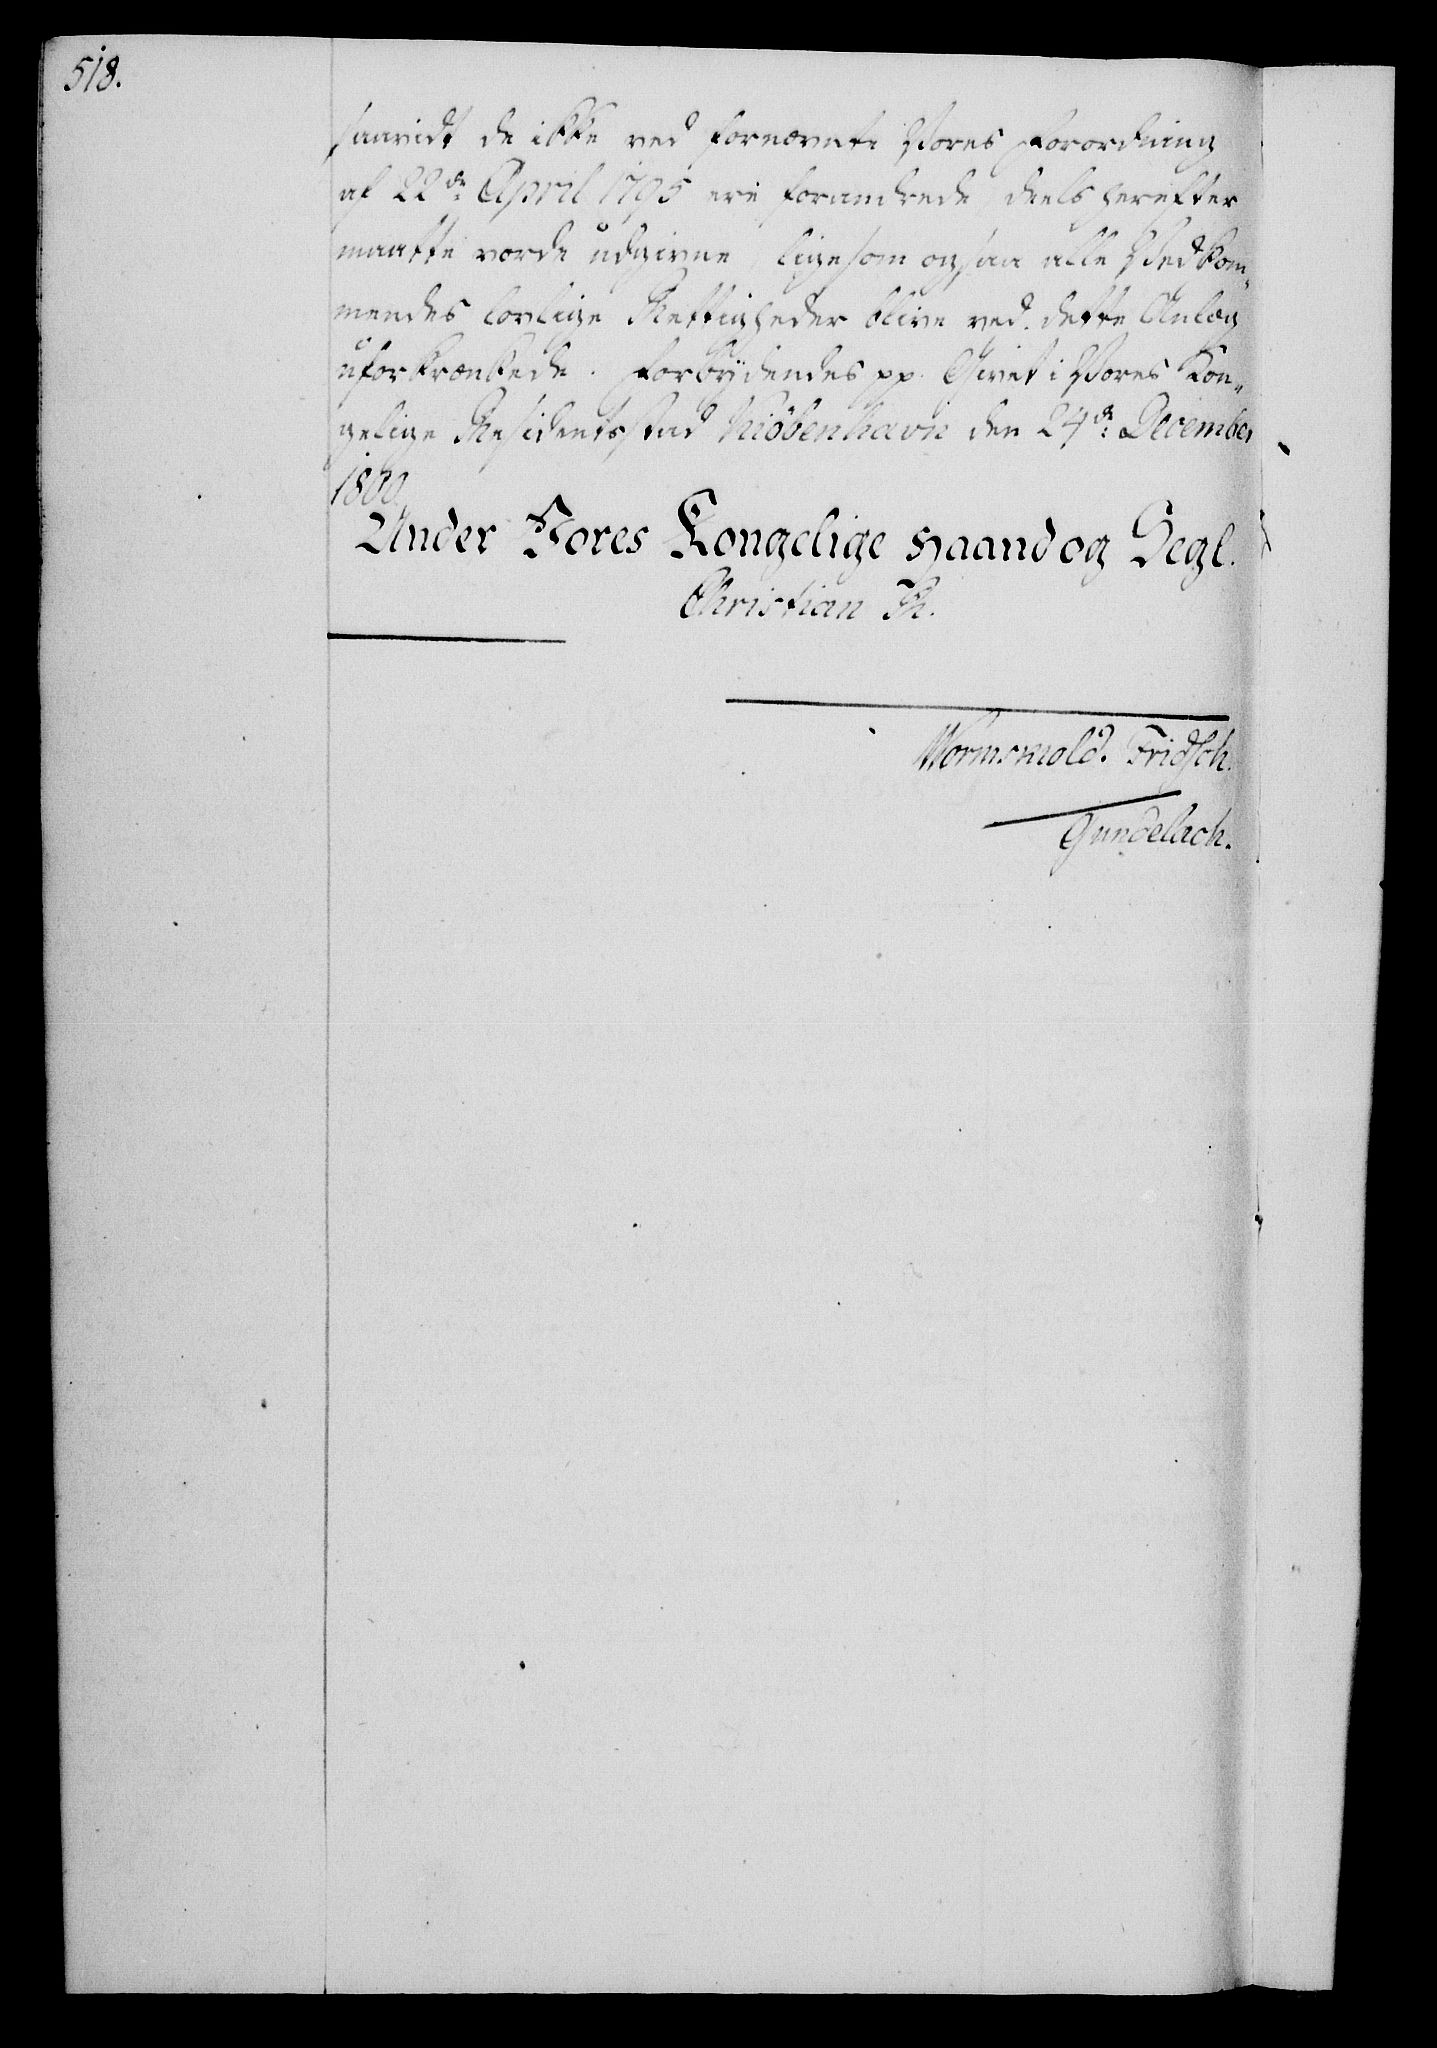 518.
saavidt de ikke ved fornævnte Vores Forordning
af 22de April 1795 ere forandrede, deels herefter
maatte vorde udgivne, ligesom ogsaa alle Vedkom„
mendes lovlige Rettigheder blive ved dette Anlæg
uforkrænkede. Forbydendes pp. Givet i Vores Kon„
gelige Residentsstad Kiöbenhavn den 24de December
1800.
Under Vores Kongelige Haand og Segl.
Christian R.
Wormskiold. Fridsch.
Gundelach.